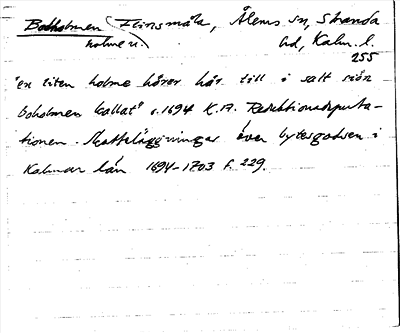 Boholmen Flinsmåla, Ålems sn, Stranda
holme u. hd, Kalm. l.
255
"en liten holme hörer här till i salt siön
Boholmen kallat" c. 1694 K.A. Reduktionsdeputa-
tionen. Skattläggningar över bytesgodsen i
Kalmar län 1694-1703 f. 229.